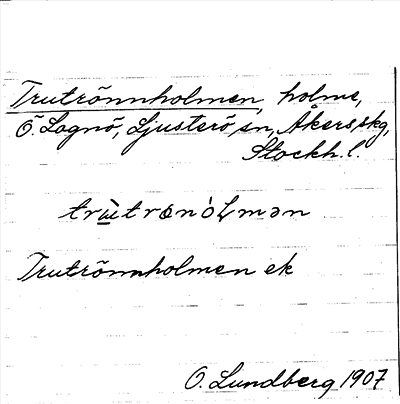 Trutrönnholmen, holme,
Ö. Lagnö, Ljusterö sn, Åkers skg,
Stockh. l.
trùtrønòLmən
Trutrönnholmen ek
O. Lundberg 1907